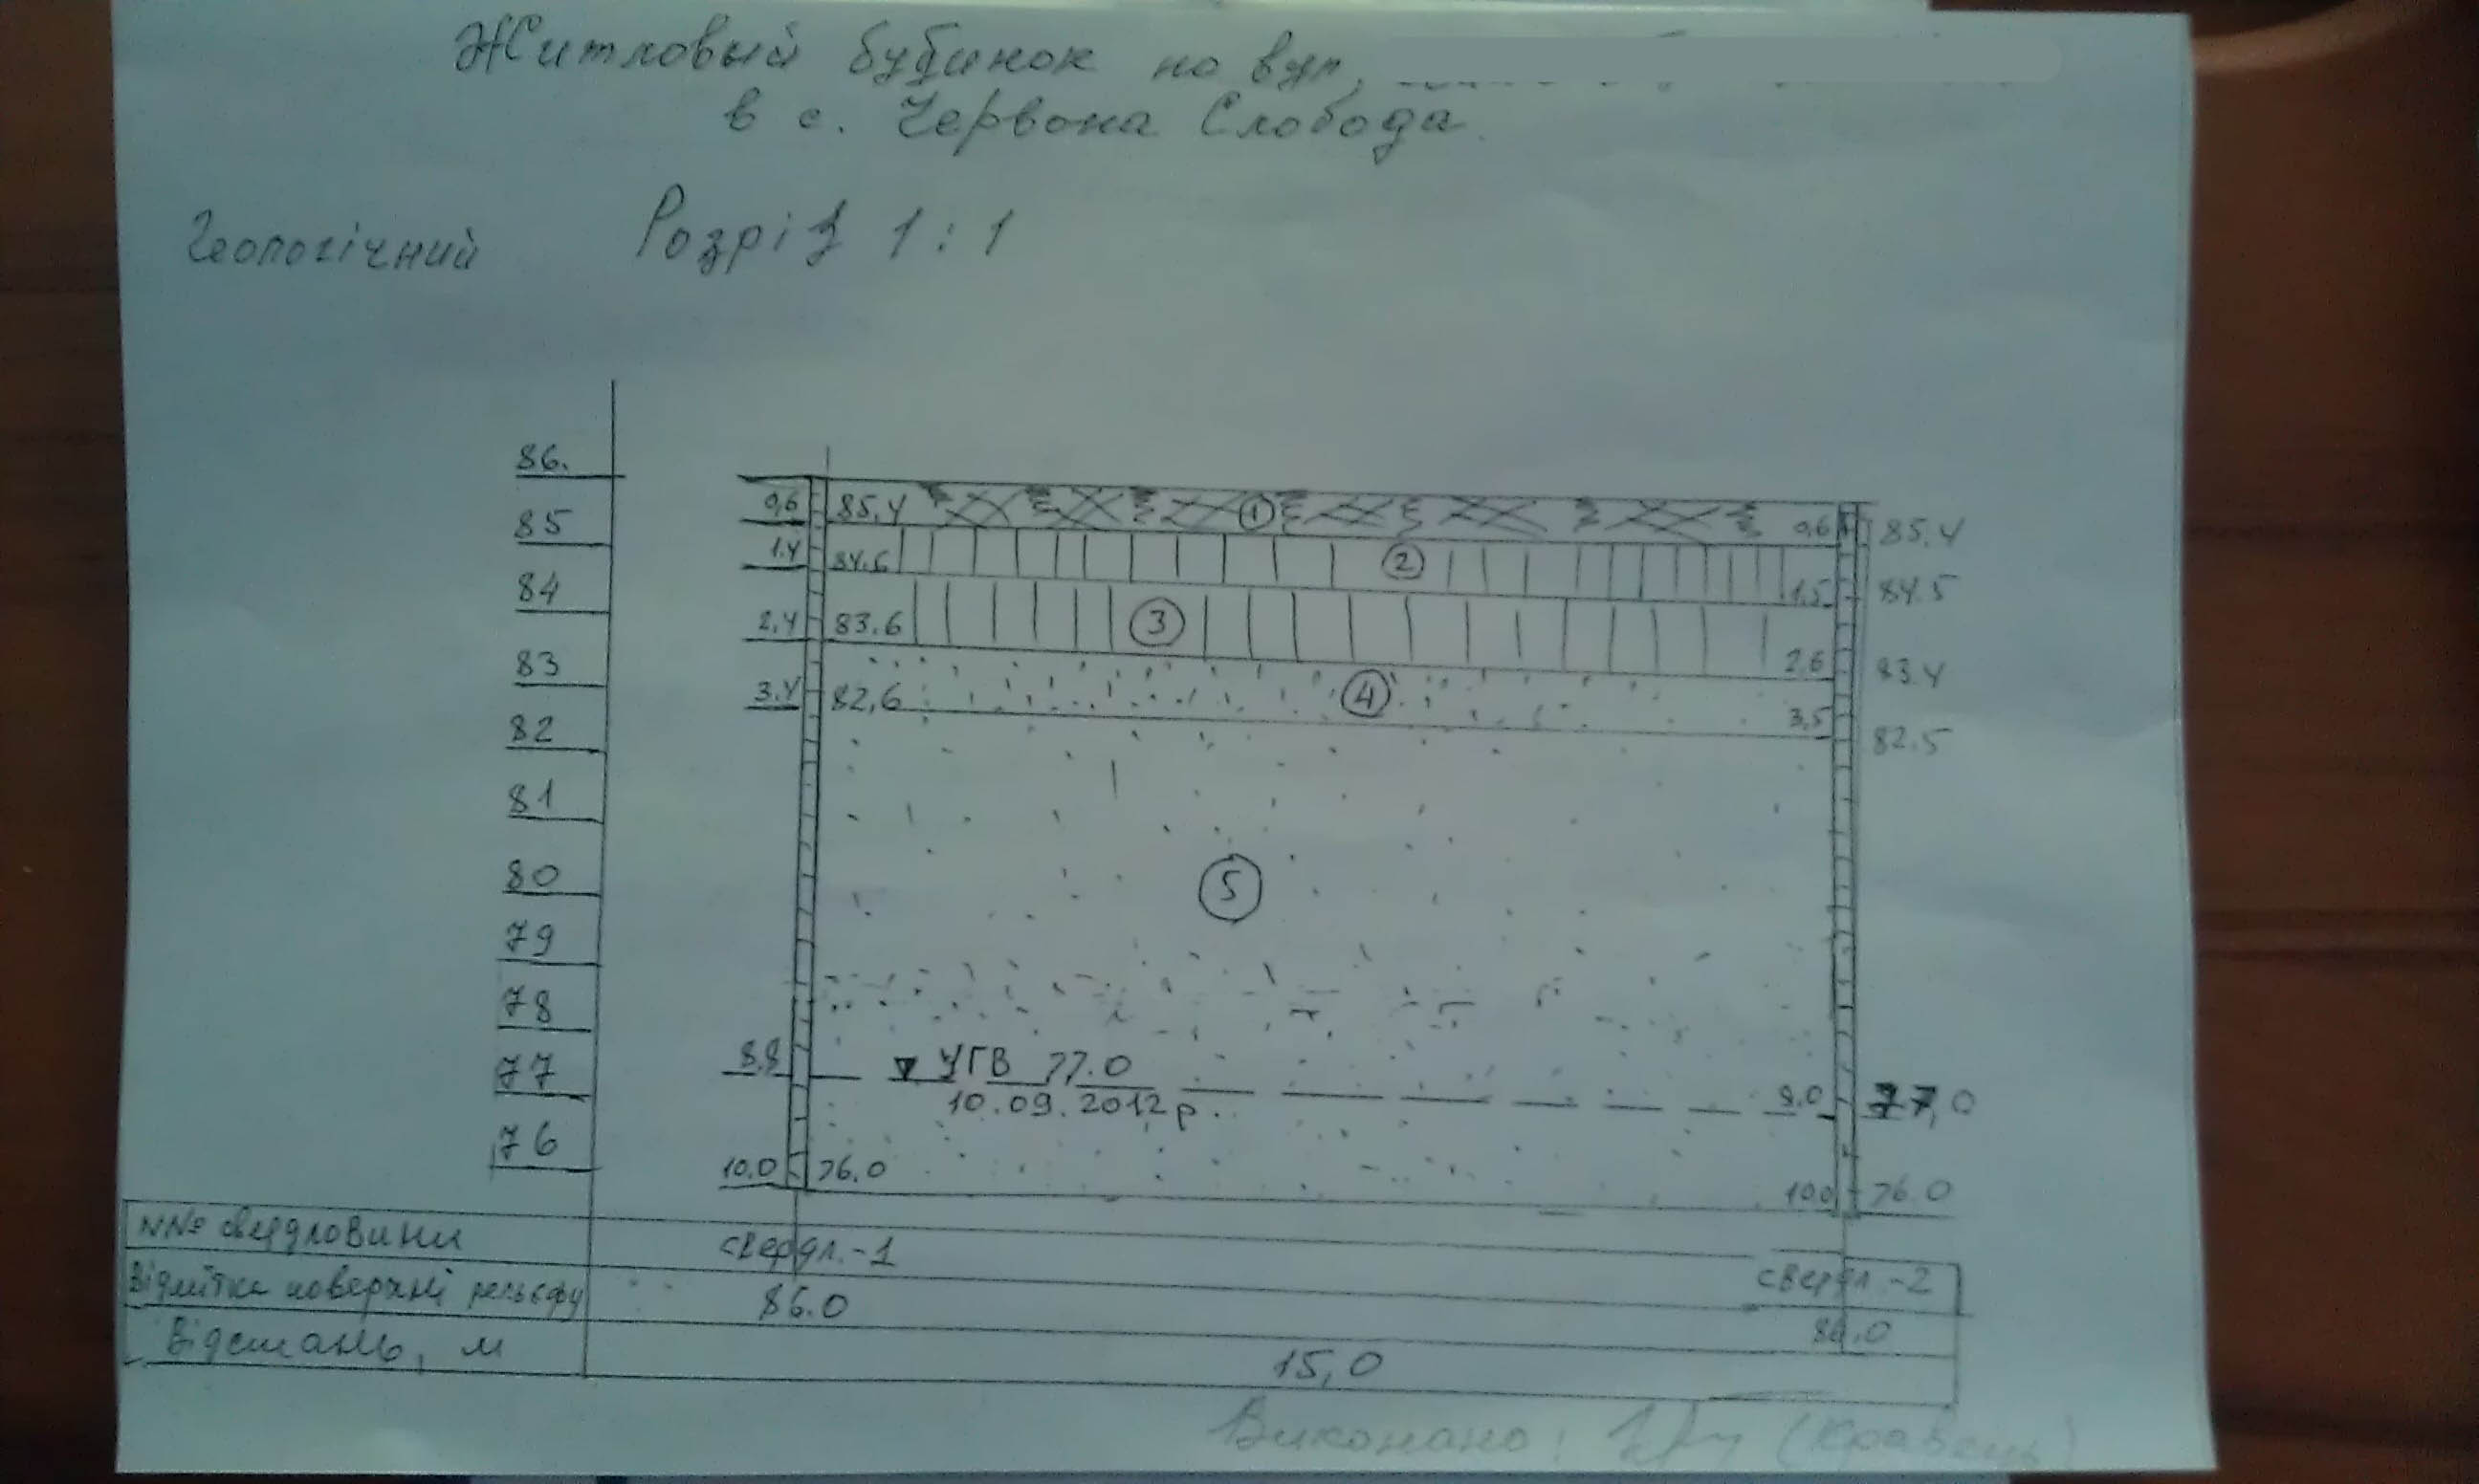 Житловый будинок по вул.
в с. Червона Слобода
Геологічний Розріз 1:1
86.
85
84
83
82
81
80
79
78
77
76
0,6 85.4 1 0,6 85.4
1.4 84.6 2 1,5 84.5
2,4 83.6 3 2,6 83.4
3.4 82,6 4 3,5 82.5
5
8.9 УГВ 77.0 9.0 77,0
10.09.2012 р.
10.0 76.0 10.0 76.0
NN° свердловини свердл.-1 свердл.-2
Відмітка поверхні рельєфу 86.0 86.0
Відстань, м 15,0
Виконано: (Кравець)